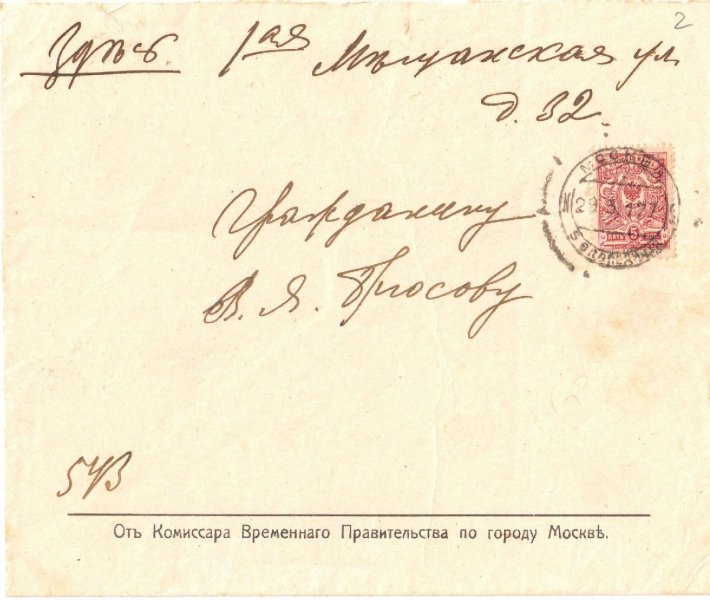 2
Здѣсь. 1ая Мѣщанская ул.
д. 32.
МОСКВА
29.3.17
5
Гражданину
В. Я.
543
Отъ Комиссара Временнаго Правительства по городу Москвѣ.